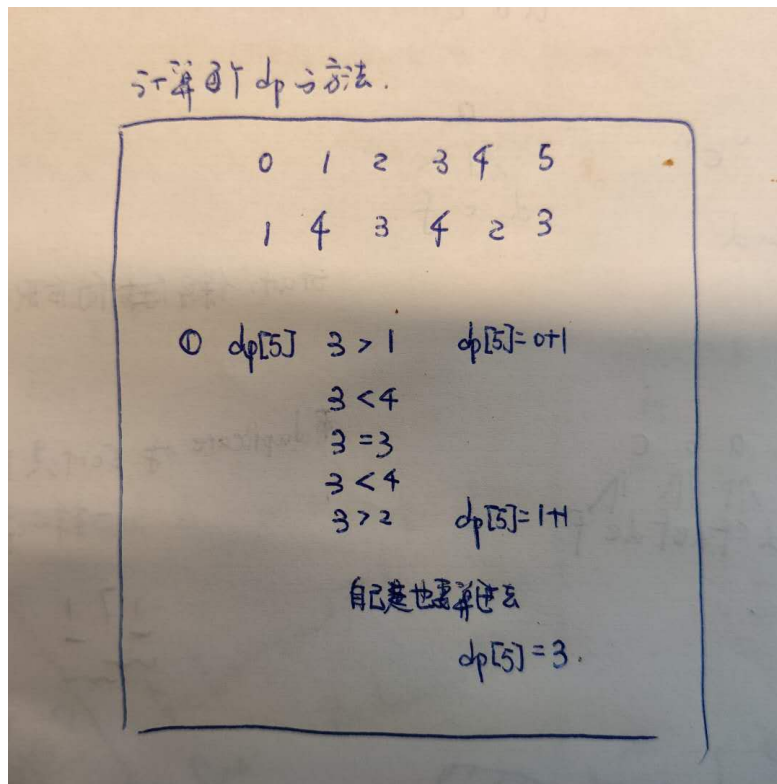 计算每个dp的方法.
0 1 2 3 4 5
1 4 3 4 2 3
① dp[5] 3 > 1 dp[5]=0+1
3 < 4
3 = 3
3 < 4
3 > 2 dp[5]=1+1
自己也要算进去
dp[5]=3.